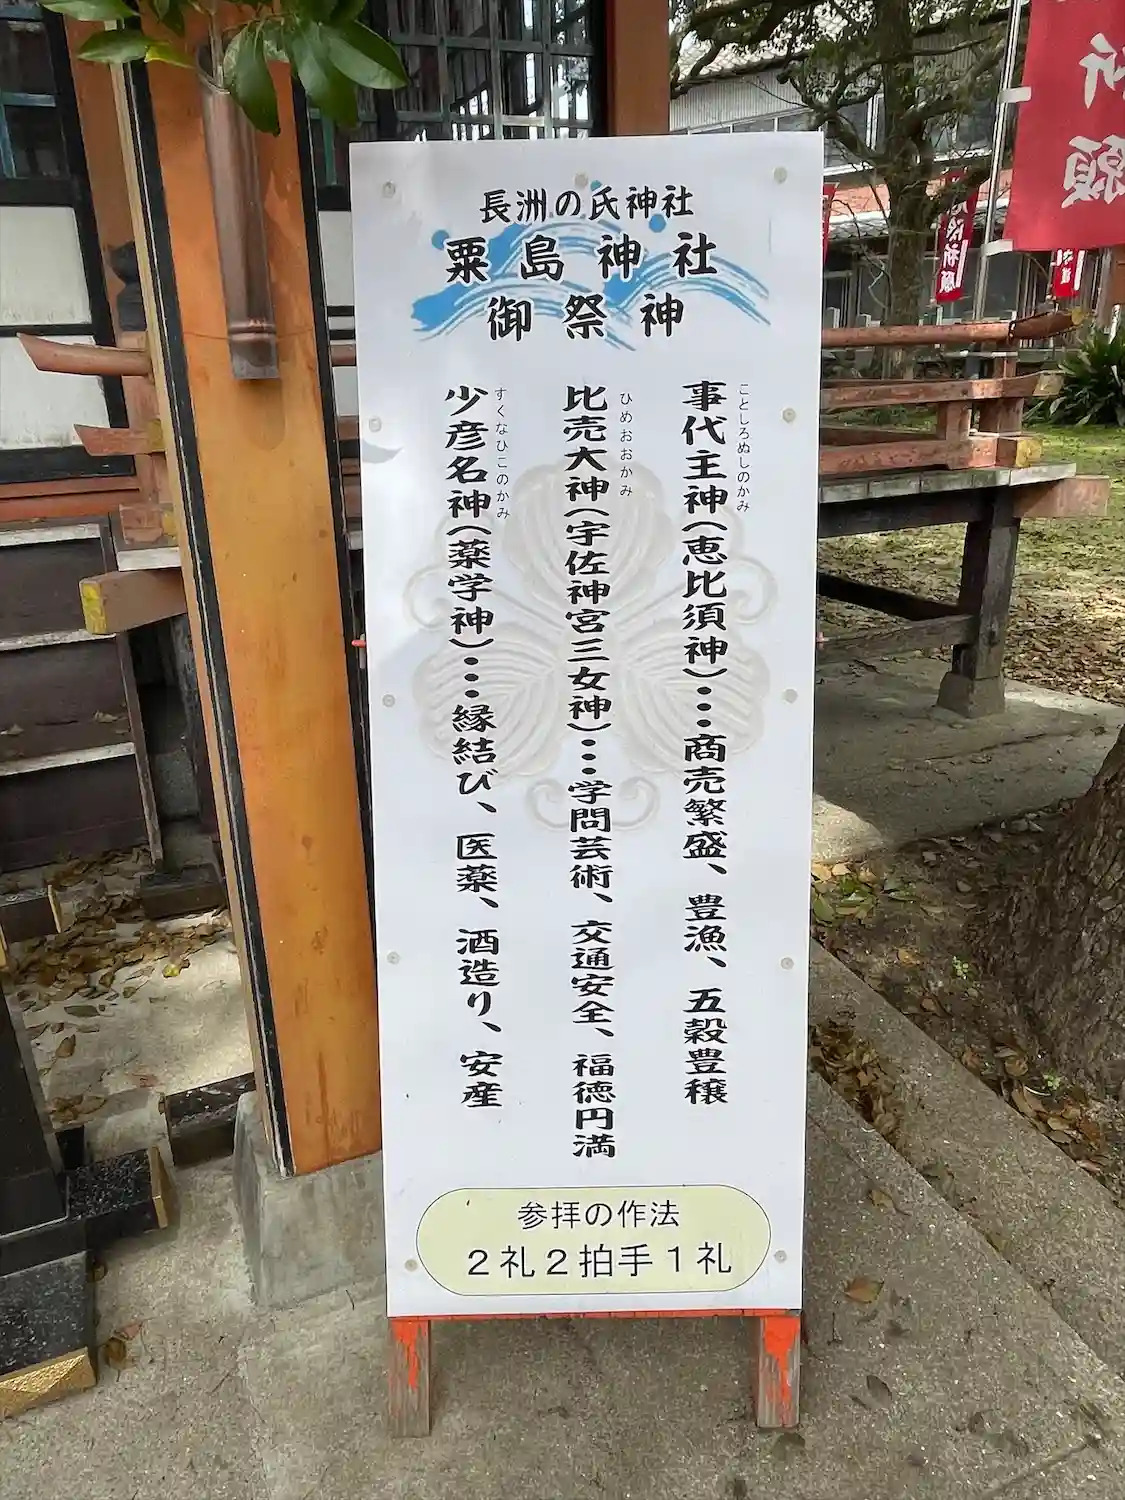 長洲の氏神社
粟島神社
御祭神
事代主神(恵比須神)・・・商売繁盛、豊漁、五穀豊穣
ことしろぬしのかみ
比売大神(宇佐神宮三女神)・・・学問芸術、交通安全、福徳円満
ひめおおかみ
少彦名神(薬学神)・・・縁結び、医薬、酒造り、安産
すくなひこのかみ
参拝の作法
2礼2拍手1礼
祈願
祈願